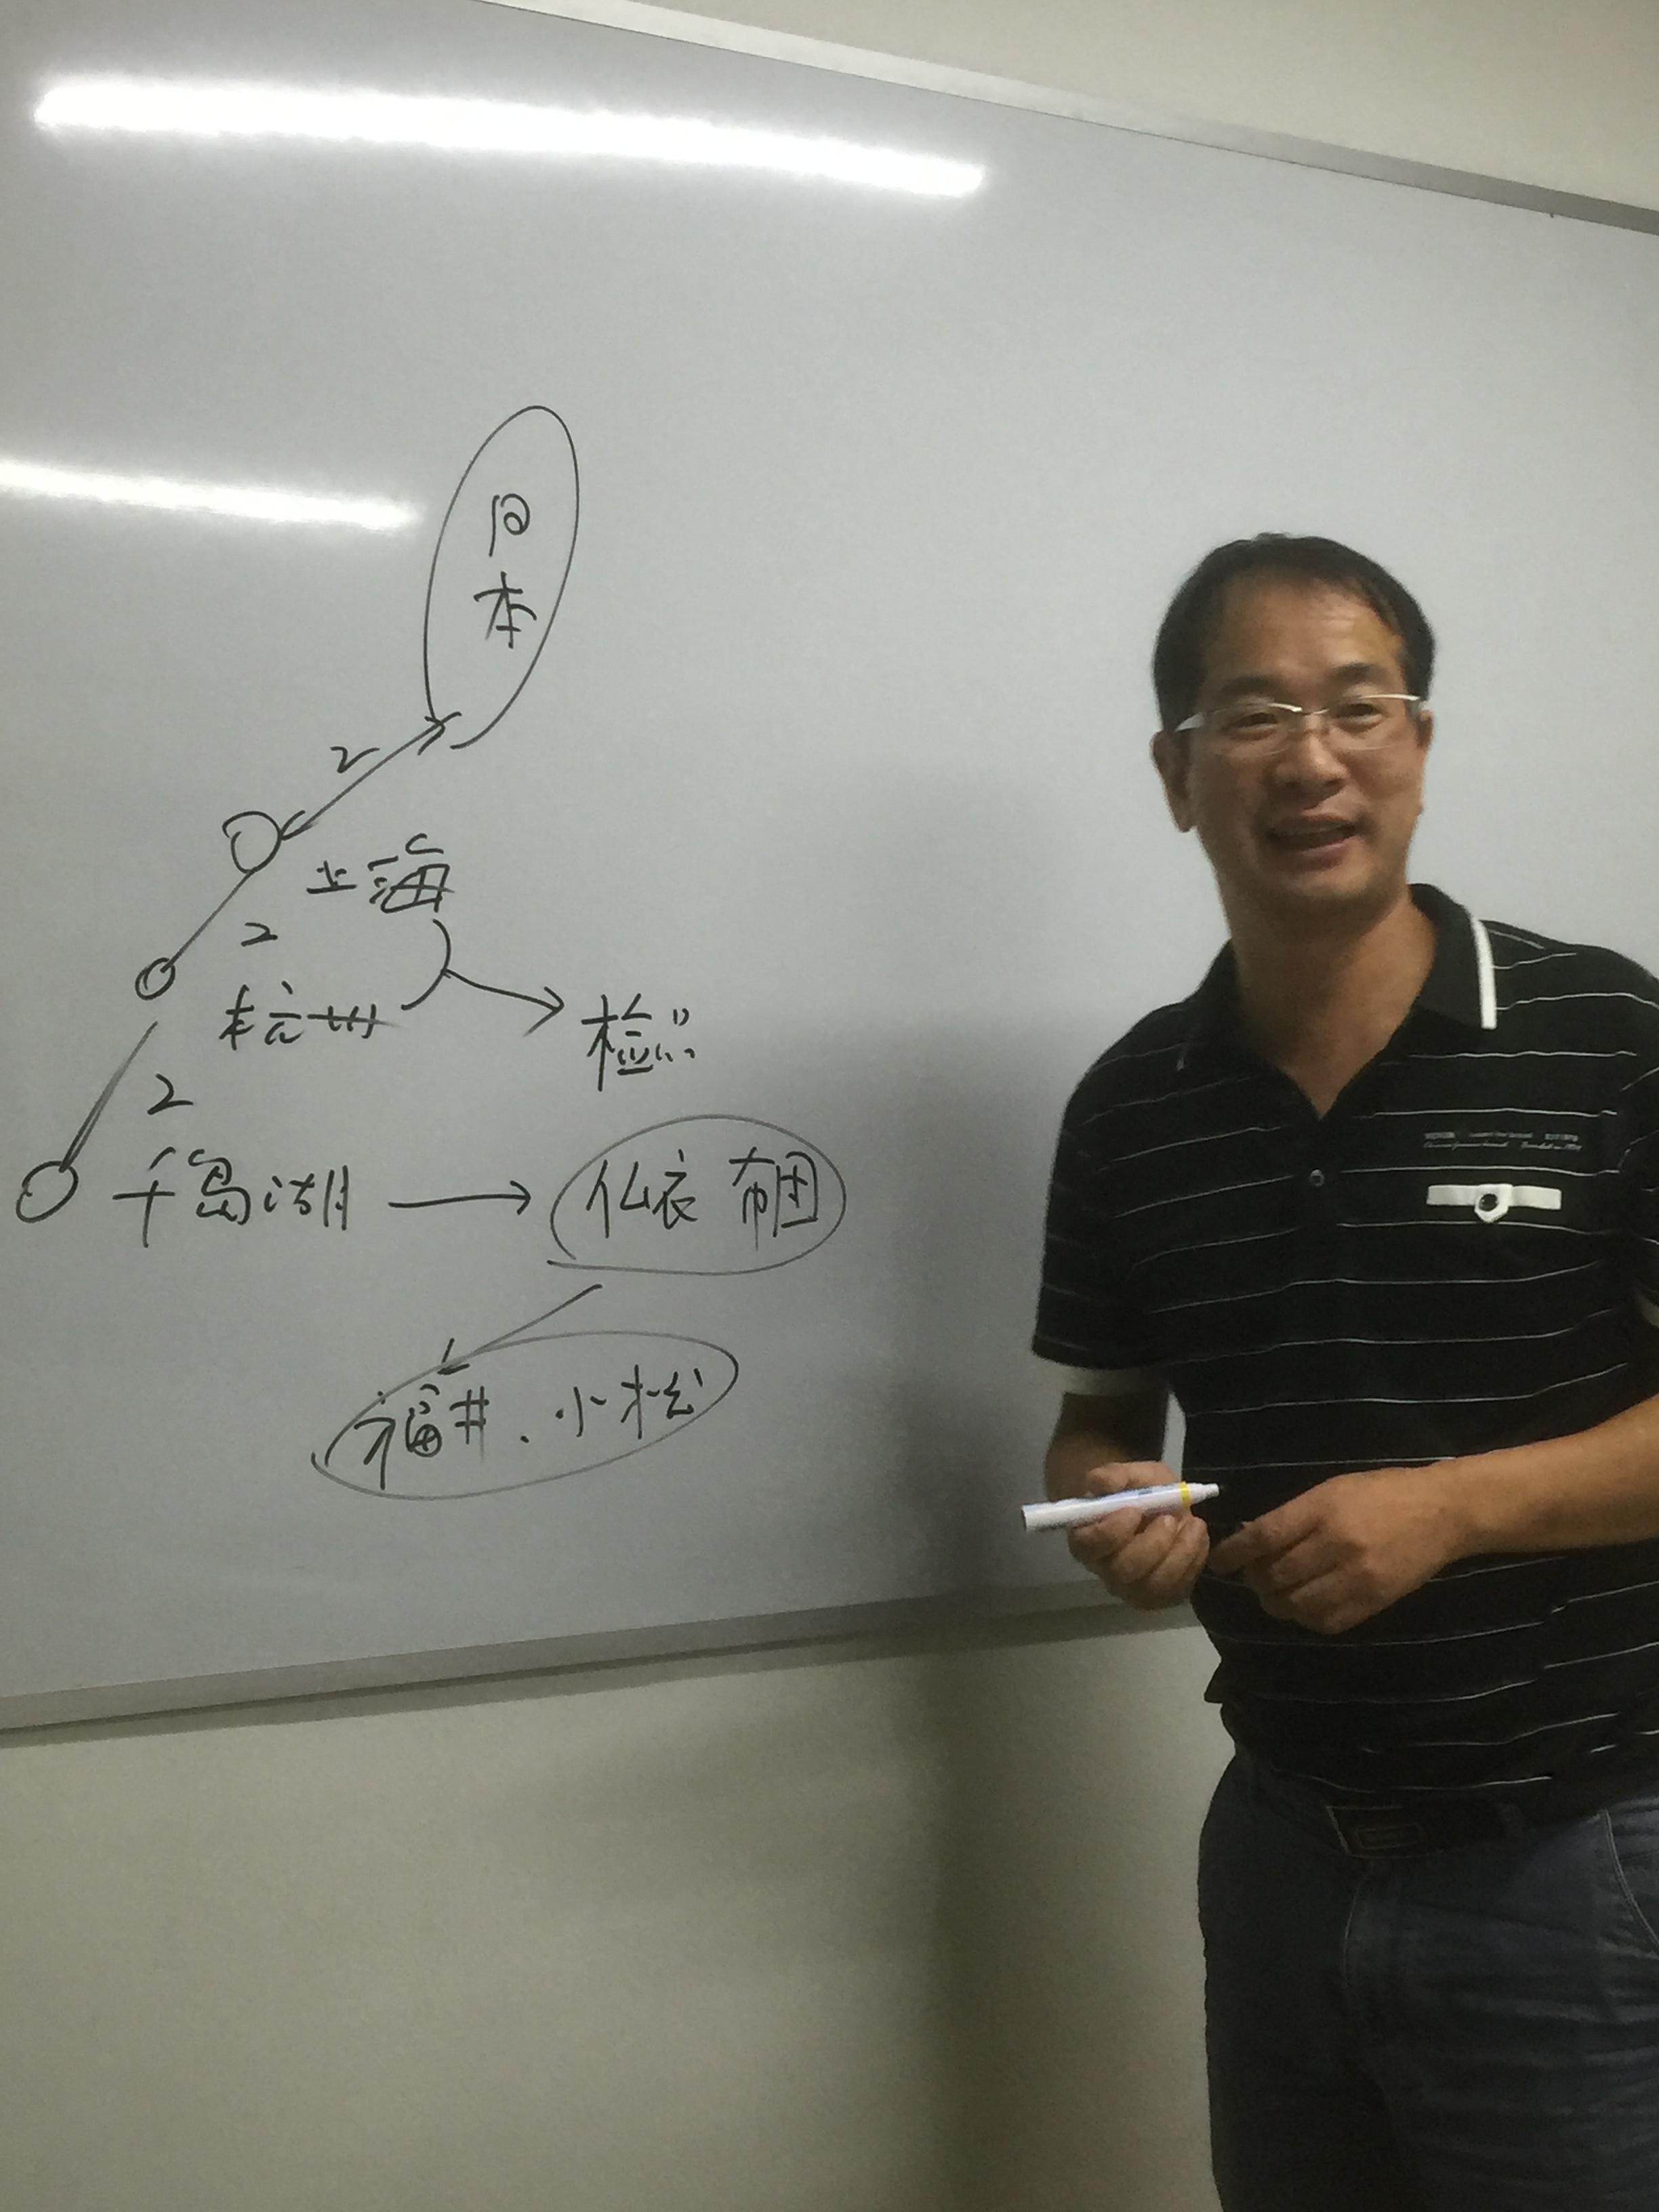 日
本
2
上海
2
杭州
检点
2
千岛湖
仏衣 布団
福井、小松